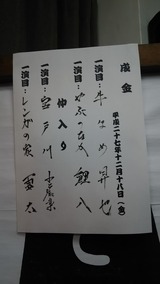 成金
平成二十七年十二月十八日(金)
一演目:牛ほめ 昇也
一演目: 鯉八
仲入り
一演目:宮戸川 小痴楽
一演目:レンガの家